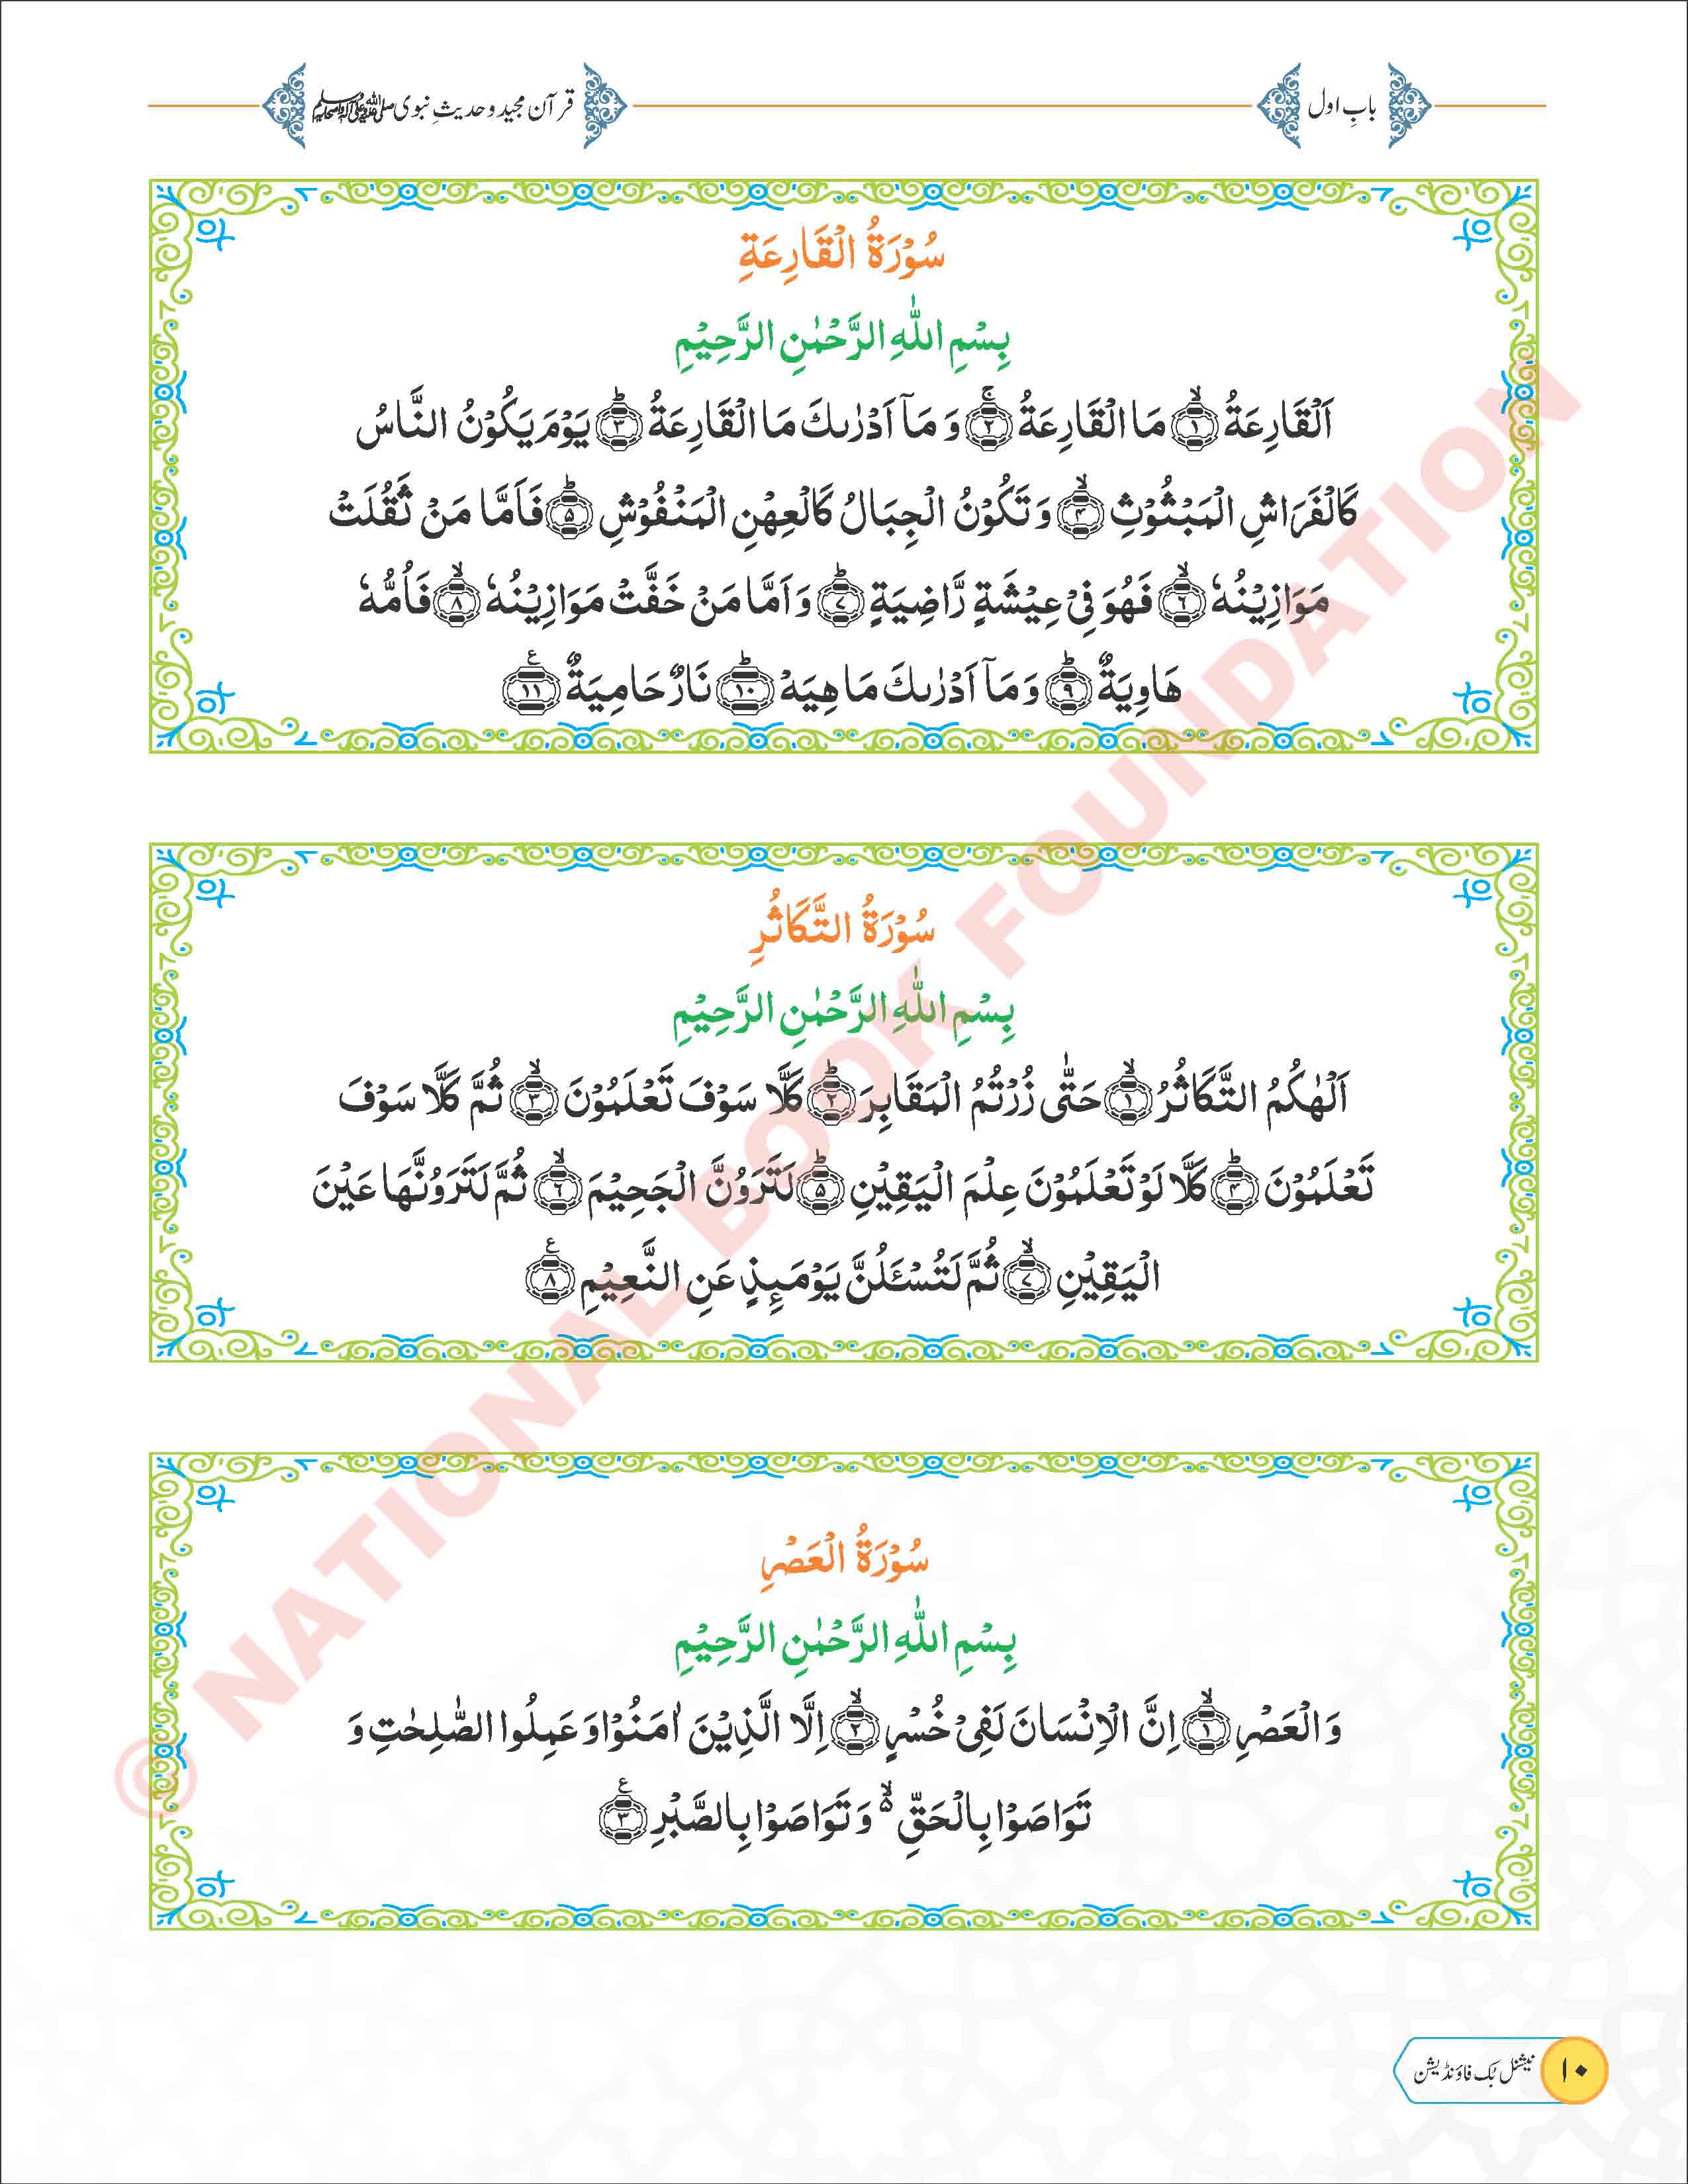 بابِ اول
قرآن مجید و حدیثِ نبوی صلی اللہ علیہ وآلہ وسلم
سُوْرَةُ الْقَارِعَةِ
بِسْمِ اللّٰهِ الرَّحْمٰنِ الرَّحِیْمِ
اَلْقَارِعَةُ ۙ﴿۱﴾ مَا الْقَارِعَةُ ۚ﴿۲﴾ وَ مَاۤ اَدْرٰىكَ مَا الْقَارِعَةُ ؕ﴿۳﴾ یَوْمَ یَكُوْنُ النَّاسُ
كَالْفَرَاشِ الْمَبْثُوْثِ ۙ﴿۴﴾ وَ تَكُوْنُ الْجِبَالُ كَالْعِهْنِ الْمَنْفُوْشِ ؕ﴿۵﴾ فَاَمَّا مَنْ ثَقُلَتْ
مَوَازِیْنُهٗ ۙ﴿۶﴾ فَهُوَ فِیْ عِیْشَةٍ رَّاضِیَةٍ ؕ﴿۷﴾ وَ اَمَّا مَنْ خَفَّتْ مَوَازِیْنُهٗ ۙ﴿۸﴾ فَاُمُّهٗ
هَاوِیَةٌ ؕ﴿۹﴾ وَ مَاۤ اَدْرٰىكَ مَا هِیَهْ ؕ﴿۱۰﴾ نَارٌ حَامِیَةٌ ﴿۱۱﴾ ع
سُوْرَةُ التَّكَاثُرِ
بِسْمِ اللّٰهِ الرَّحْمٰنِ الرَّحِیْمِ
اَلْهٰىكُمُ التَّكَاثُرُ ۙ﴿۱﴾ حَتّٰى زُرْتُمُ الْمَقَابِرَ ؕ﴿۲﴾ كَلَّا سَوْفَ تَعْلَمُوْنَ ۙ﴿۳﴾ ثُمَّ كَلَّا سَوْفَ
تَعْلَمُوْنَ ؕ﴿۴﴾ كَلَّا لَوْ تَعْلَمُوْنَ عِلْمَ الْیَقِیْنِ ؕ﴿۵﴾ لَتَرَوُنَّ الْجَحِیْمَ ۙ﴿۶﴾ ثُمَّ لَتَرَوُنَّهَا عَیْنَ
الْیَقِیْنِ ۙ﴿۷﴾ ثُمَّ لَتُسْـَٔلُنَّ یَوْمَىِٕذٍ عَنِ النَّعِیْمِ ﴿۸﴾ ع
سُوْرَةُ الْعَصْرِ
بِسْمِ اللّٰهِ الرَّحْمٰنِ الرَّحِیْمِ
وَ الْعَصْرِ ۙ﴿۱﴾ اِنَّ الْاِنْسَانَ لَفِیْ خُسْرٍ ۙ﴿۲﴾ اِلَّا الَّذِیْنَ اٰمَنُوْا وَ عَمِلُوا الصّٰلِحٰتِ وَ
تَوَاصَوْا بِالْحَقِّ ۙ۬ وَ تَوَاصَوْا بِالصَّبْرِ ﴿۳﴾ ع
© NATIONAL BOOK FOUNDATION
۱۰
نیشنل بُک فاؤنڈیشن